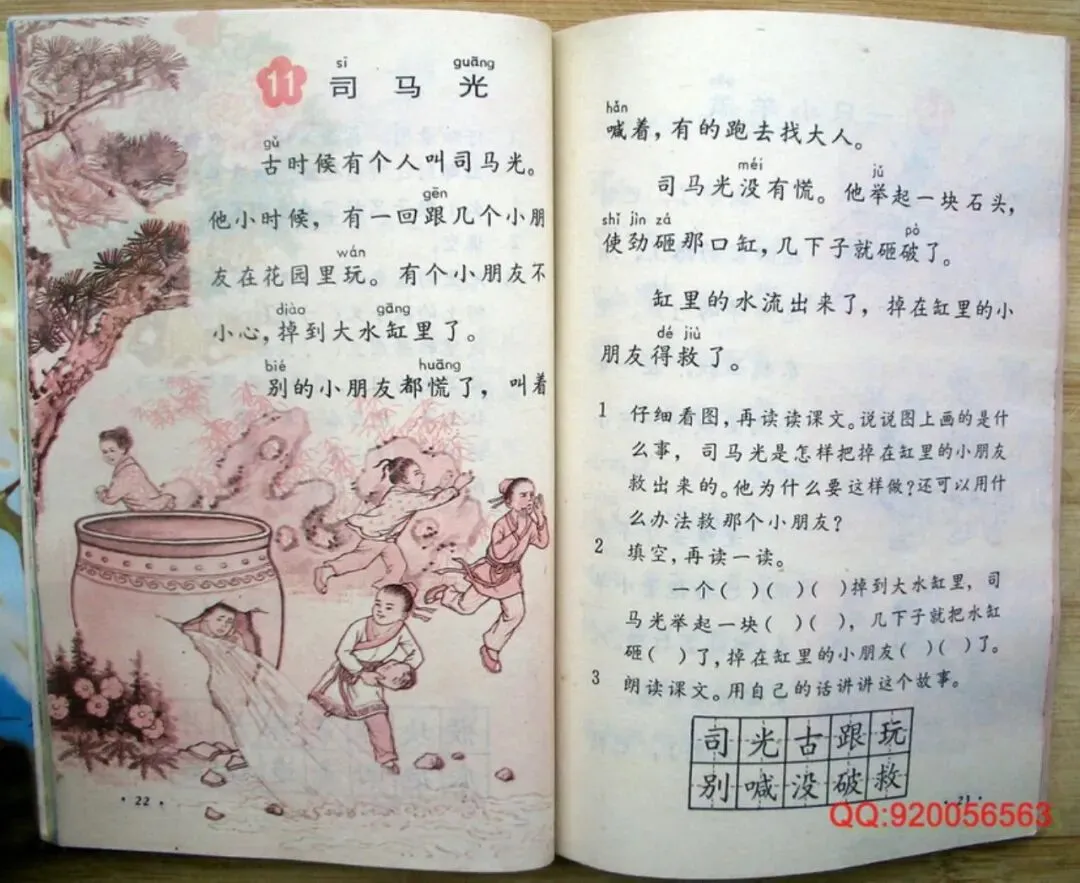 sī guāng
11 司马光
gǔ
古时候有个人叫司马光。
gēn
他小时候，有一回跟几个小朋
wán
友在花园里玩。有个小朋友不
diào gāng
小心，掉到大水缸里了。
bié huāng
别的小朋友都慌了，叫着
· 22 ·
hǎn
喊着，有的跑去找大人。
méi jǔ
司马光没有慌。他举起一块石头，
shǐ jìn zá pò
使劲砸那口缸，几下子就砸破了。
缸里的水流出来了，掉在缸里的小
dé jiù
朋友得救了。
1 仔细看图，再读读课文。说说图上画的是什
么事，司马光是怎样把掉在缸里的小朋友
救出来的。他为什么要这样做？还可以用什
么办法救那个小朋友？
2 填空，再读一读。
一个( )( )( )掉到大水缸里，司
马光举起一块( )( )，几下子就把水缸
砸( )了，掉在缸里的小朋友( )( )了。
3 朗读课文。用自己的话讲讲这个故事。
司光古跟玩
别喊没破救
QQ:920056563